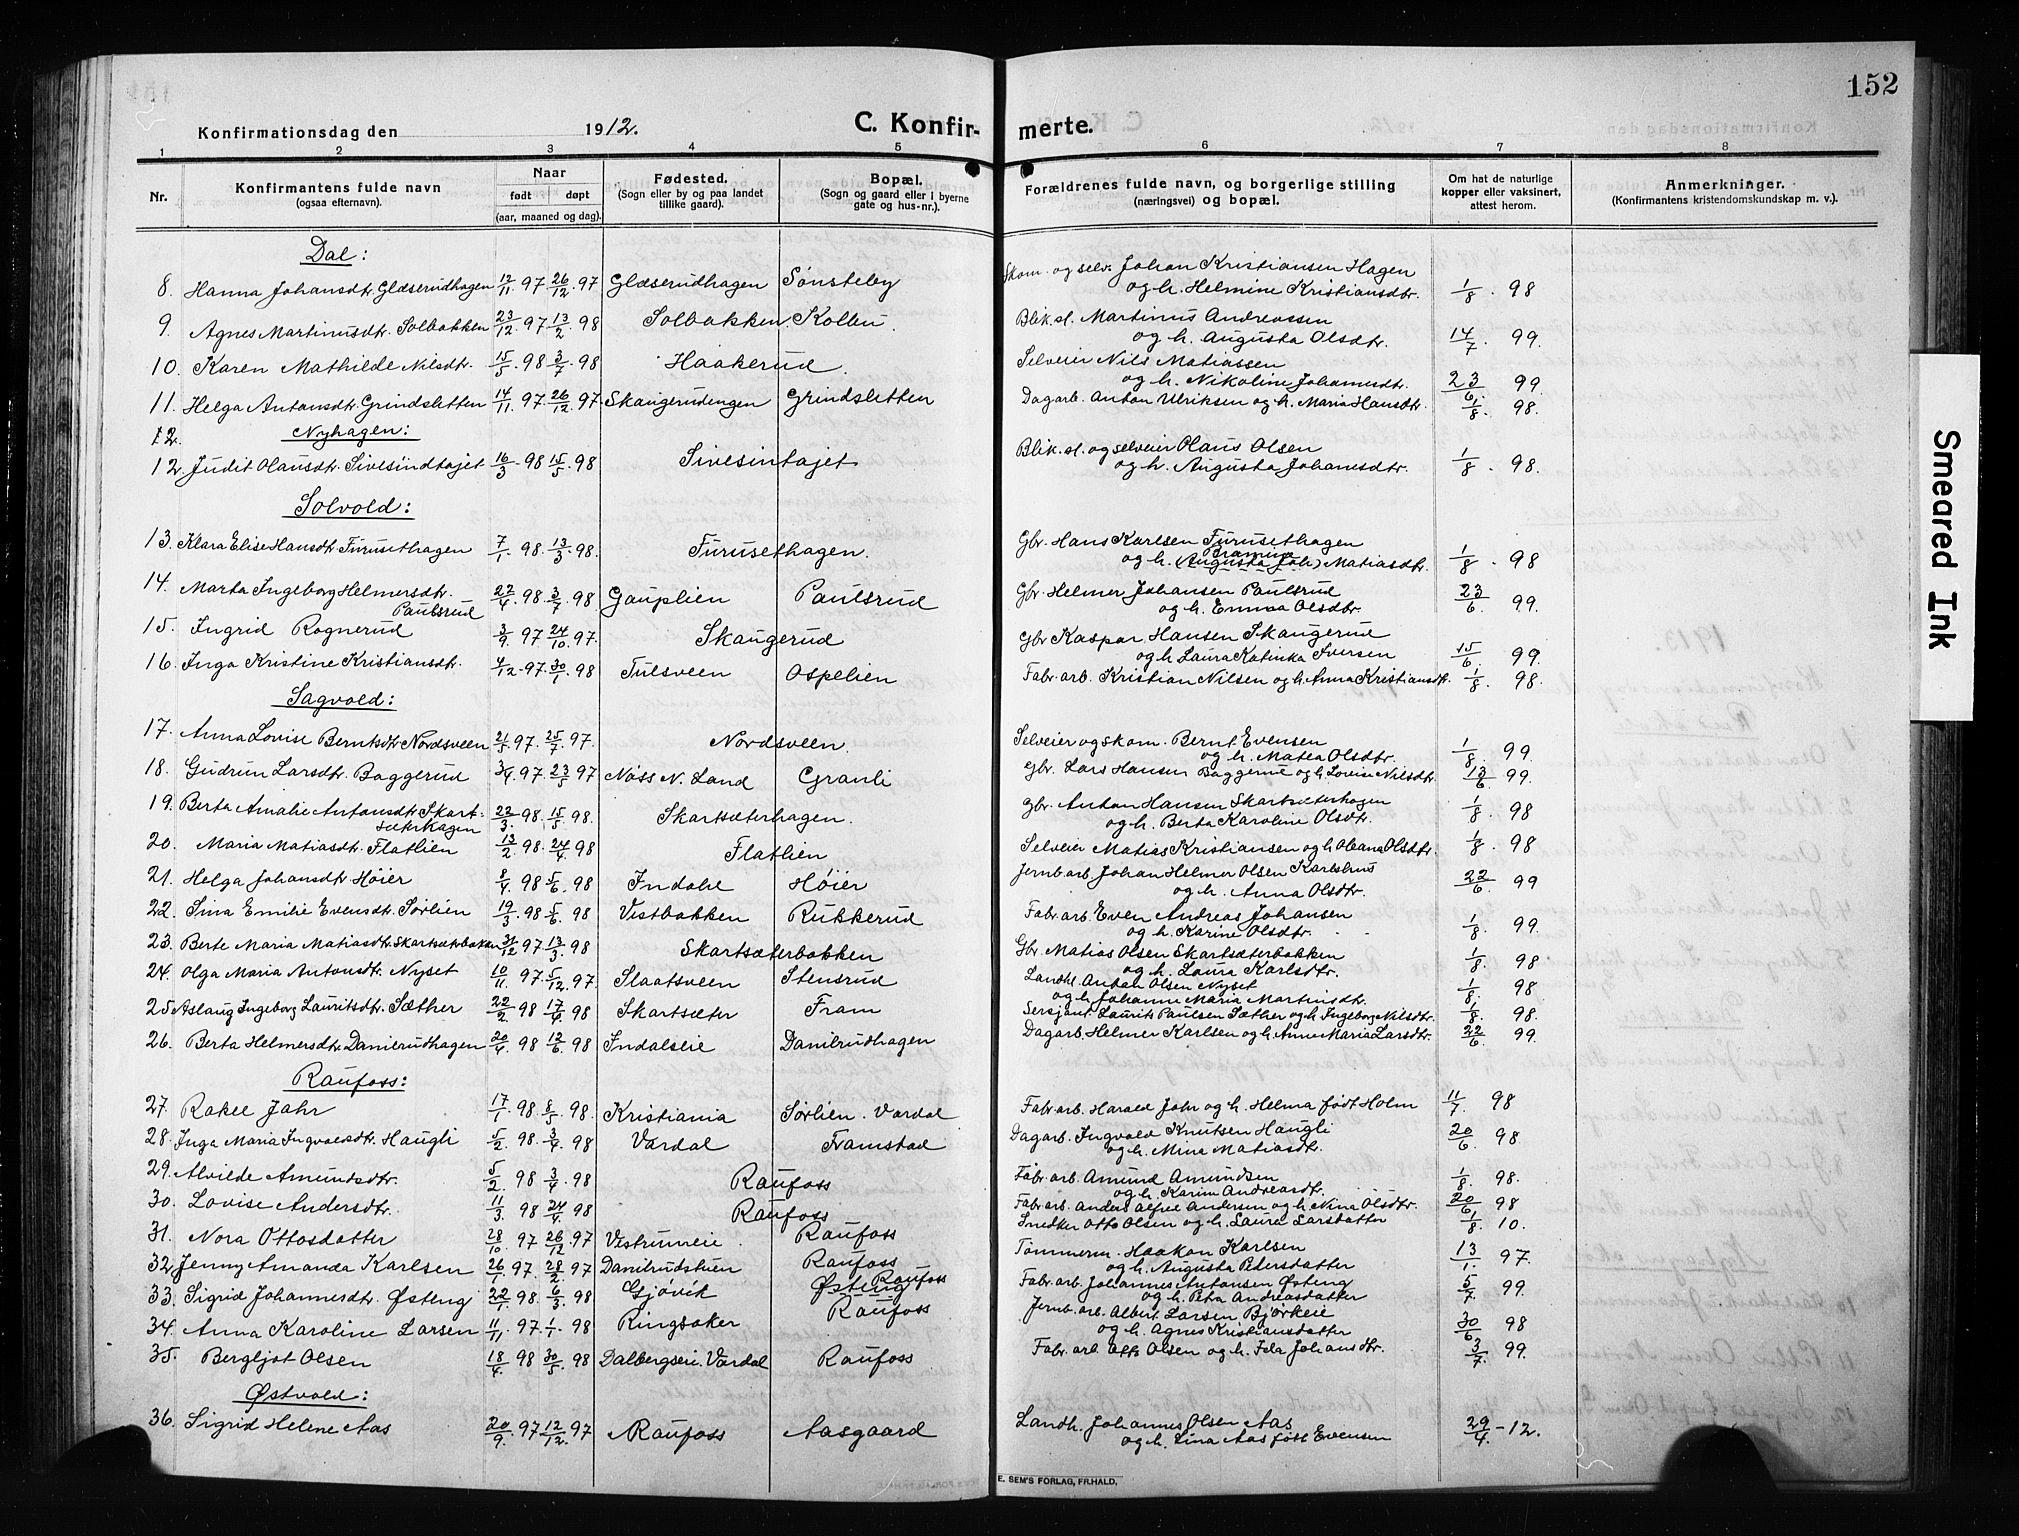 152
Konfirmationsdag den 1912.
C. Konfirmerte.
1 2 3 4 5 6 7 8
Nr. Konfirmantens fulde navn (ogsaa efternavn). Naar født døpt (aar, maaned og dag). Fødested. (Sogn eller by og paa landet tillike gaard). Bopæl. (Sogn og gaard eller i byerne gate og hus-nr.). Forældrenes fulde navn, og borgerlige stilling (næringsvei) og bopæl. Om hat de naturlige kopper eller vaksinert, attest herom. Anmerkninger. (Konfirmantens kristendomskundskap m. v.).
Dal:
8. Hanna Johansdtr. Glæserudhagen 12/11. 97. 26/12. 97 Glæserudhagen Sønsteby Skom. og selv. Johan Kristiansen Hagen
og h. Helmine Kristiansdtr. 1/8. 98
9. Agnes Martinusdtr. Solbakken 23/12. 97 13/2. 98 Solbakken, Kolbu. Blik.sl. Martinus Andreassen
og h. Augusta Olsdtr. 14/7. 99.
10. Karen Mathilde Nilsdtr. 15/5. 98 3/7. 98 Haakerud. Selveier Nils Matiassen
og h. Nikoline Johannesdtr. 23/6. 99.
11. Helga Antonsdtr. Grindsletten 14/11. 97. 26/12. 97 Skaugerudengen Grindsletten Dagarb. Anton Ulriksen og h. Maria Hansdtr. 1/8. 98.
12. Nyhagen:
12. Judit Olausdtr. Sivesindtajet 16/3. 98 15/5. 98 Sivesintajet Blik.sl. og selveier Olaus Olsen
og h. Augusta Johannesdtr. 1/8. 98.
Solvold:
13. Klara Elise Hansdtr Furusethagen 7/1. 98. 13/3. 98. Furusethagen. Gbr. Hans Karlsen Furusethagen
Bramine
og h. (Augusta Joh.) Matiasdtr. 1/8. 98
14. Marta Ingeborg Helmersdtr.
Paulsrud 22/4. 98. 3/7. 98 Gauplien Paulsrud Gbr. Helmer Johansen Paulsrud
og h. Emma Olsdtr. 23/6. 99.
15. Ingrid Rognerud 3/9. 97 24/10. 97. Skaugerud Gbr Kaspar Hansen Skaugerud
og h Laura Katinka Iversen 15/6. 99.
16. Inga Kristine Kristiansdtr. 4/12. 97. 30/1. 98 Tulsveen Ospelien Fabr. arb. Kristian Nilsen og h. Anna Kristiansdtr. 1/8. 98.
Sagvold:
17. Anna Lovise Berntsdtr Nordsveen 21/5. 97. 25/7. 97. Nordsveen. Selveier og skom. Bernt Evensen
og h. Matea Olsdtr. 1/8. 99
18. Gudrun Larsdtr. Baggerud 3/4. 97. 23/5. 97 Nøss N. Land Granli Gbr. Lars Hansen Baggerud og h. Lovise Nilsdtr. 13/6. 99.
19. Berta Amalie Antonsdtr Skart-
sæterhagen 22/3. 98. 15/5. 98. Skartsæterhagen. Gbr. Anton Hansen Skartsæterhagen
og h. Berta Karoline Olsdtr. 1/8. 98
20. Maria Matiasdtr. Flatlien 13/2. 98. 24/4. 98 Flatlien Selveier Matias Kristiansen og h Oleana Olsdtr. 1/8. 98
21. Helga Johansdtr Høier 8/4. 98 5/6. 98 Indahl Høier Jernb. arb. Johan Helmer Olsen Karlshus
og h. Anna Olsdtr. 22/6. 99
22. Sina Emilie Evensdtr. Sørlien 19/3. 98 5/6. 98 Vestbakken Rukkerud Fabr. arb. Even Andreas Johansen
og h. Karine Olsdtr. 1/8. 99.
23. Berte Maria Matiasdtr Skartsæterbakken 31/12 97 13/3. 98 Skartsæterbakken Gbr. Matias Olsen Skartsæterbakken
og h. Laura Karlsdtr. 1/8. 98
24. Olga Maria Antonsdtr. Nyset 10/11. 97. 5/12. 97. Slaatsveen Stensrud Landh. Anton Olsen Nyset
og h. Johanne Maria Martinsdtr. 1/8. 98.
25. Aslaug Ingeborg Lauritsdtr. Sæther 22/2. 98 17/4. 98 Skartsæter Fram Sersjant Laurits Paulsen Sæther og h Ingeborg Nilsdtr. 1/8. 98.
26. Berta Helmersdtr. Danilrudhagen 20/4. 98 12/6. 98 Indalseie Danilrudhagen Dagarb. Helmer Karlsen og h. Anne Maria Larsdtr. 22/6. 99.
Raufoss:
27. Rakel Jahr 17/1. 98 8/5. 98. Kristiania Sørlien. Vardal Fabr. arb. Harald Jahr og h. Helma født Holm 11/7. 98
28. Inga Maria Ingvoldsdtr. Haugli 5/2. 98. 3/4. 98 Vardal Framstad Dagarb. Ingvald Knutsen Haugli
og h. Mina Matiasdtr. 20/6. 98
29. Alvilde Amundsdtr. 5/2. 98 3/4. 98 Raufoss Fabr. arb. Amund Amundsen
og h. Karin Andreasdtr. 1/8. 98.
30. Lovise Andersdtr. 11/3. 98 24/4. 98 Raufoss Fabr. arb. Anders Alfred Andersen og h. Nina Olsdtr. 20/6. 98
31. Nora Ottosdatter 28/10. 97 26/12. 97 Vestrumeie. Raufoss Snedker Otto Olsen og h. Laura Larsdatter 1/8. 10.
32. Jenny Amanda Karlsen 26/1. 97. 28/2. 97 Danilrudstuen Raufoss Tømmerm. Haakon Karlsen
og h. Augusta Petersdatter 13/1. 97.
33. Sigrid Johannesdtr. Østeng 22/1. 98. 6/3. 98 Gjøvik Østeng Raufoss Fabr. arb. Johannes Antonsen Østeng
og h. Petra Andreasdatter 5/7. 99.
34. Anna Karoline Larsen 11/11. 97. 1/1. 98 Ringsaker Raufoss Jernb. arb. Albert Larsen Bjørkeie
og h. Agnes Kristiansdatter 30/6. 98
35. Bergljot Olsen 18/4. 98 30/5. 98 Dalbergseie. Vardal Raufoss Fabr. arb. Otto Olsen og h. Johansdtr. 3/7. 99.
Østvold:
36. Sigrid Helene Aas 20/9. 97 12/12. 97 Raufoss Aasgaard Landh. Johannes Olsen Aas
og h. Lina Aas født Evensen 29/4. -12.
E. SEM'S FORLAG, FR.HALD.
Smeared Ink